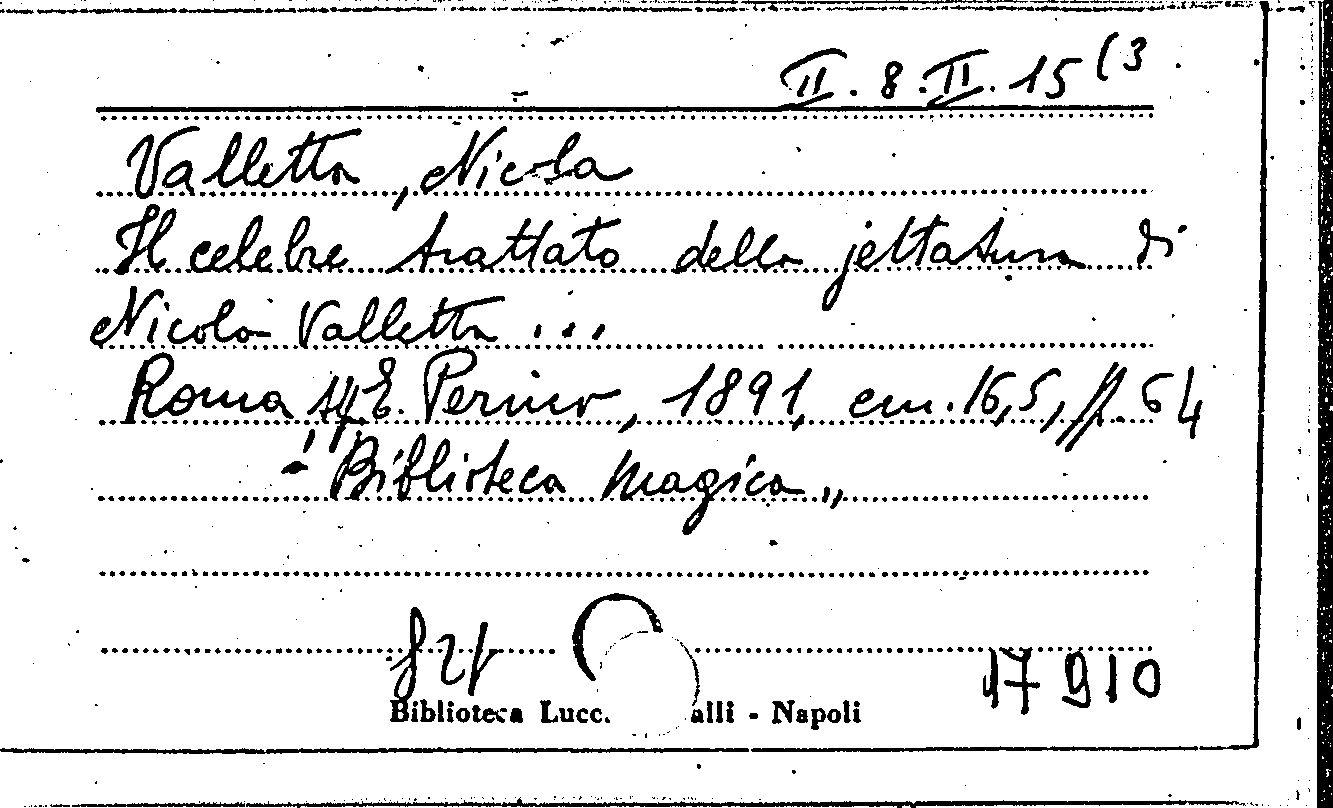 II. 8. II. 15 (3
Valletta, Nicola
Il celebre trattato della jettatura di
Nicola Valletta ...
Roma, E. Perino, 1891, cm. 16,5, pp. 64
"Biblioteca magica„
Biblioteca Lucc. alli - Napoli
17910